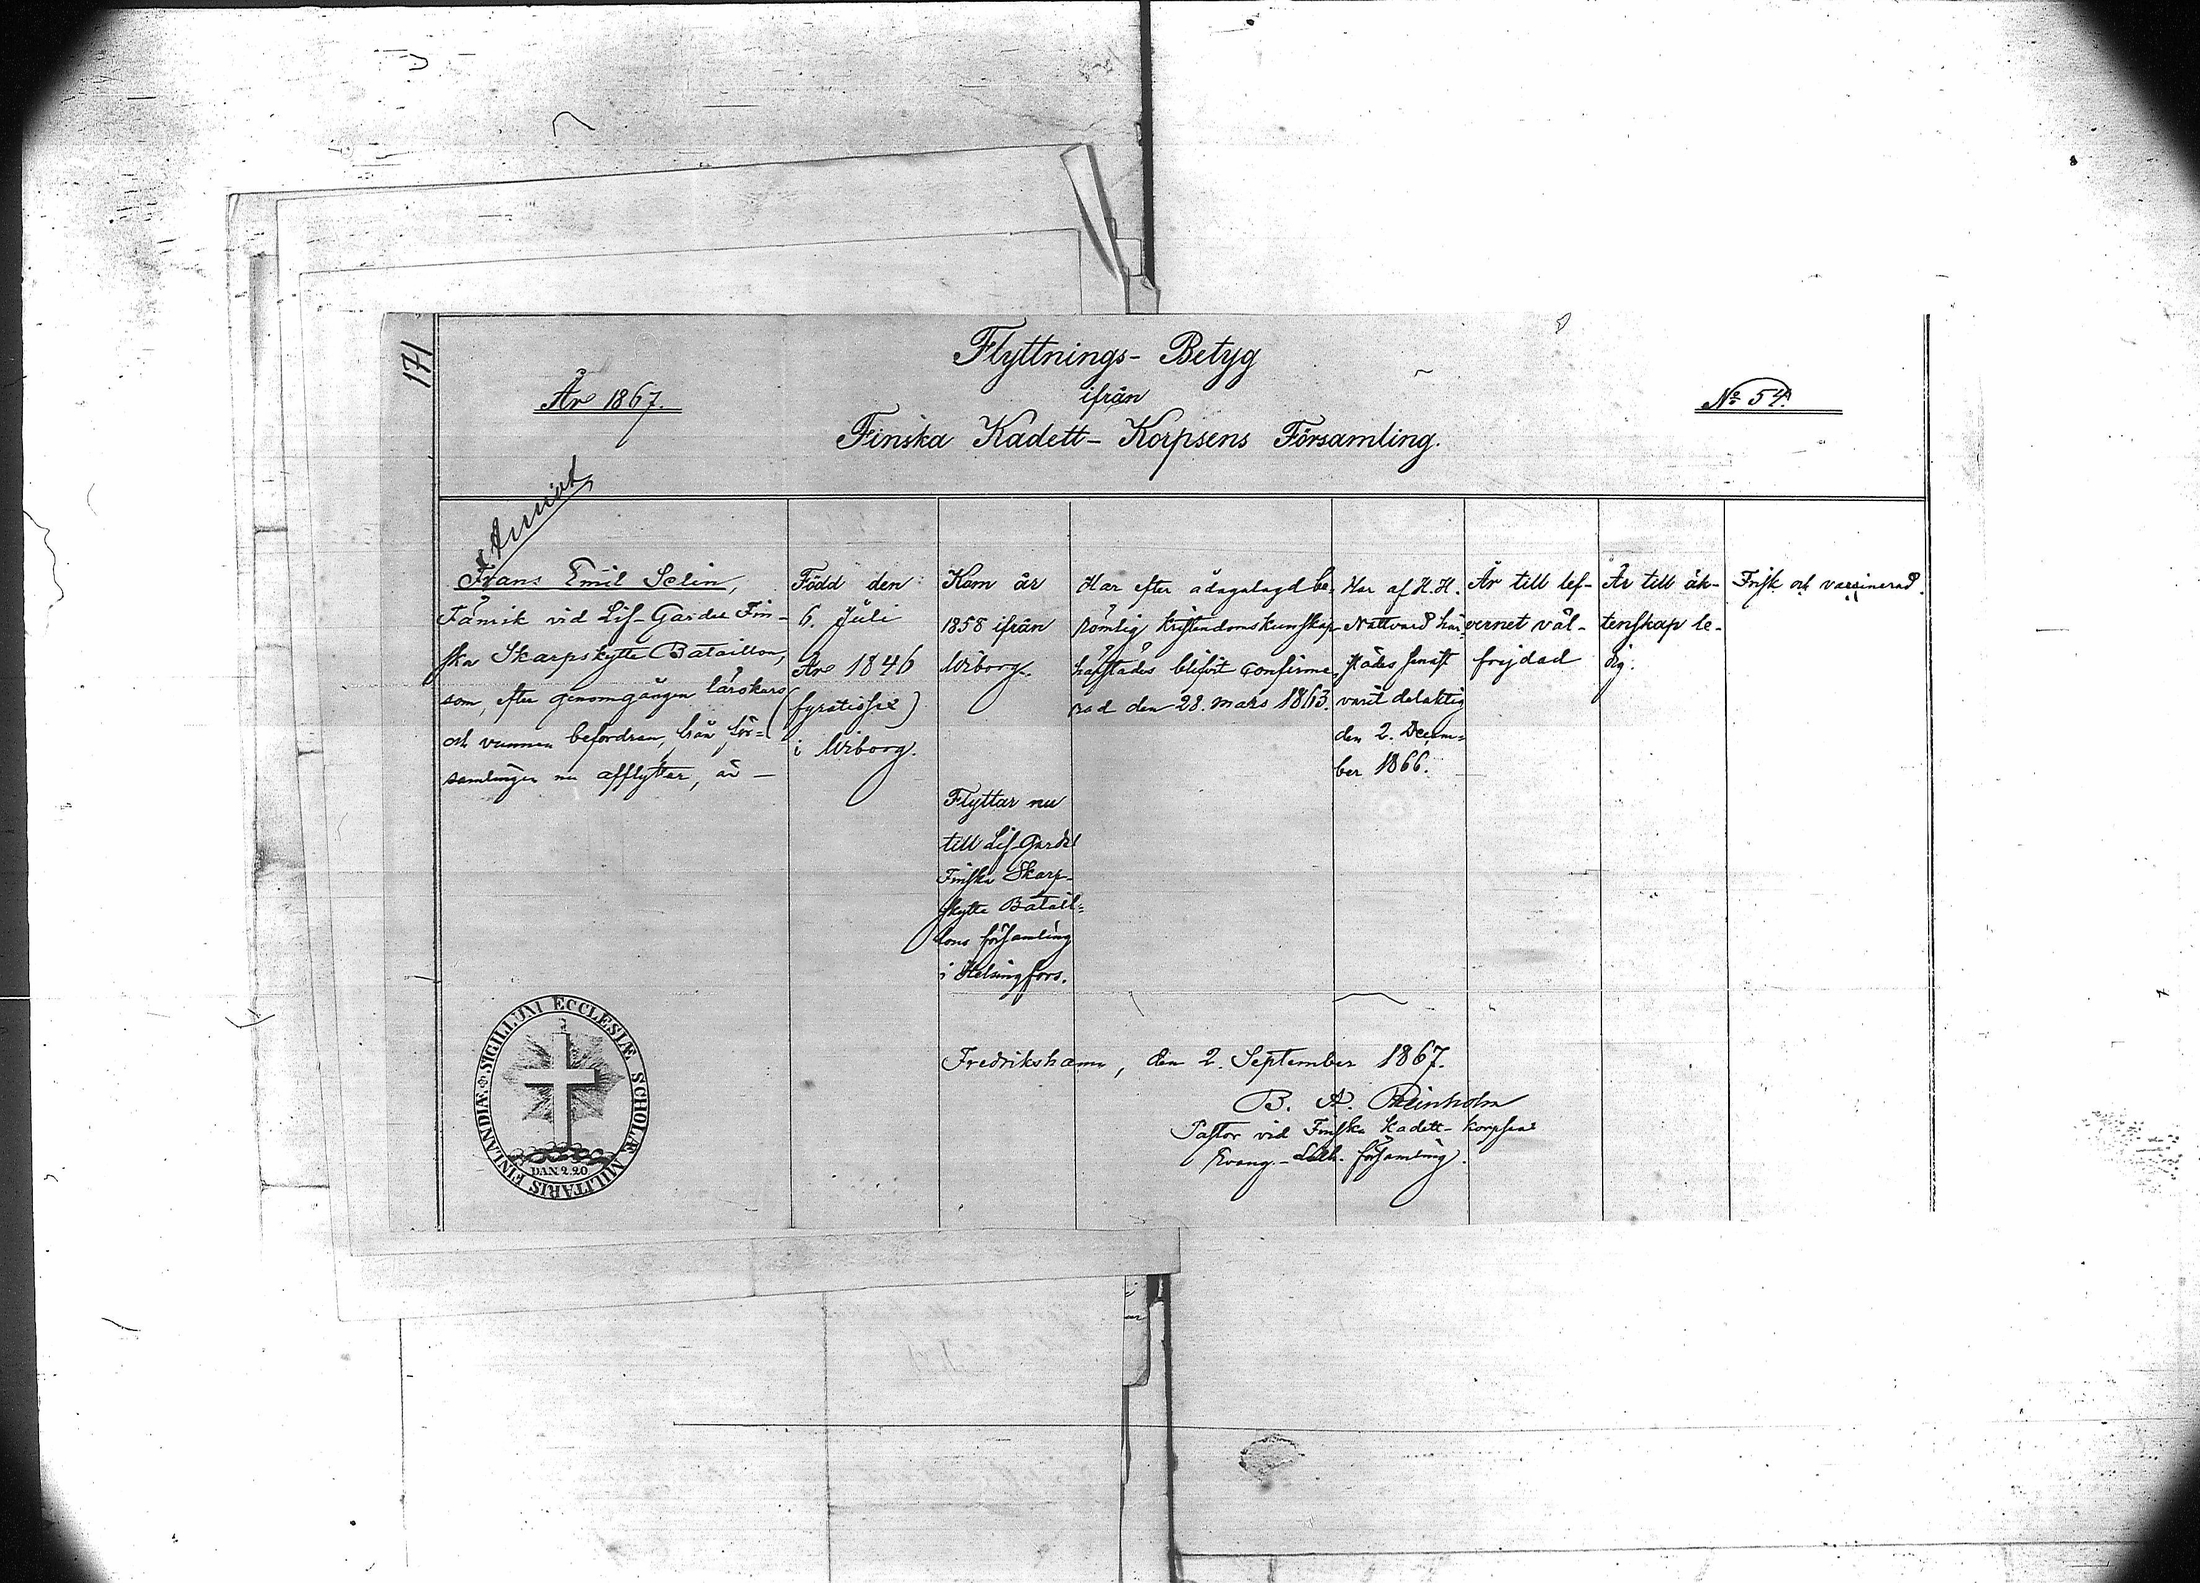 171
Flyttnings-Betyg
År 1867.
ifrån
No 54.
Finska Kadett-Korpsens Församling.
Frans Emil Selin,
Fänrik vid Lif-Gardes Fin-
ska Skarpskytte Bataillon,
som, efter genomgången lärokurs
och vunnen befordran, från för=
samlingen nu afflyttar, är —
Född den
6. Juli
År 1846
(fyratiosex)
i Wiborg.
Kom år
1858 ifrån
Wiborg.
Flyttar nu
till Lif-Gardes
Finska Skarp-
skytte Batail=
lons församling
i Helsingfors.
Har efter ådagalagd be=
römlig kristendomskunskap
härstädes blifvit confirme=
rad den 28. Mars 1863.
Har af H. H.
Nattvard här-
städes senast
varit delaktig
den 2. Decem=
ber 1866.
Är till lef-
vernet väl-
frejdad
Är till äk-
tenskap le-
dig.
Frisk och vaccinerad.
Fredrikshamn, den 2. September 1867.
B. A. Reinholm
Pastor vid Finska Kadett-Korpsens
Evang.-Luth. församling.
SIGILLUM ECCLESIÆ SCHOLÆ MILITARIS FINLANDIÆ
DAN 2.20